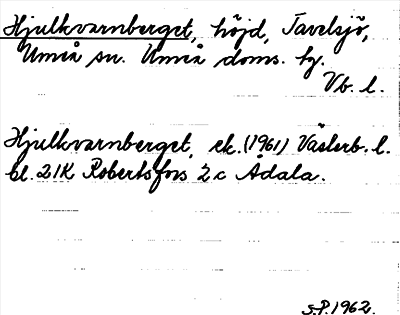 Hjulkvarnberget, höjd, Tavelsjö,
Umeå sn. Umeå doms. hg.
Vb. l.
Hjulkvarnberget, ek. (1961) Västerb. l.
bl. 21K Robertsfors 2 c Ådala.
S.P. 1962.